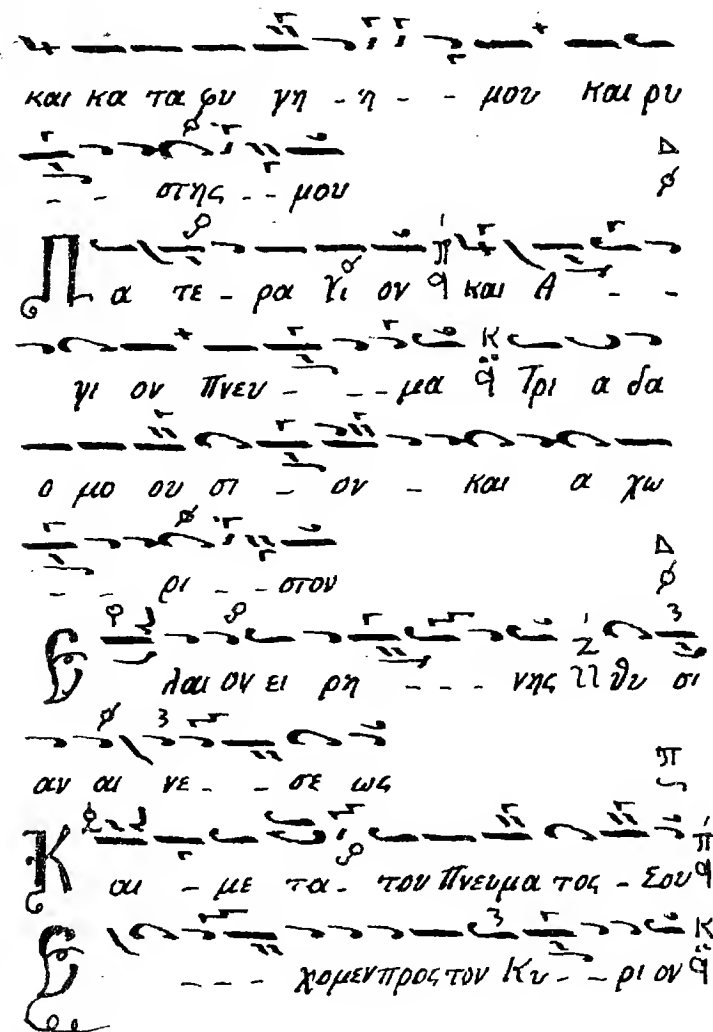 και κα τα φυ γη - η - - μου και ρυ
- - στης - - μου
Πα τε - ρα Υι ον και Α - -
γι ον Πνευ - - - μα Τρι α δα
ο μο ου σι - ον - και α χω
- - ρι - - στον
Ελαι ον ει ρη - - - νης θυ σι
αν αι νε - - σε ως
Και - με τα - του Πνευμα τος - Σου
Ε - - - χομεν προς τον Κυ - - ρι ον